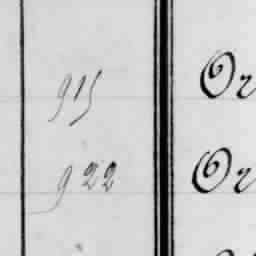 915 Or
922 Or